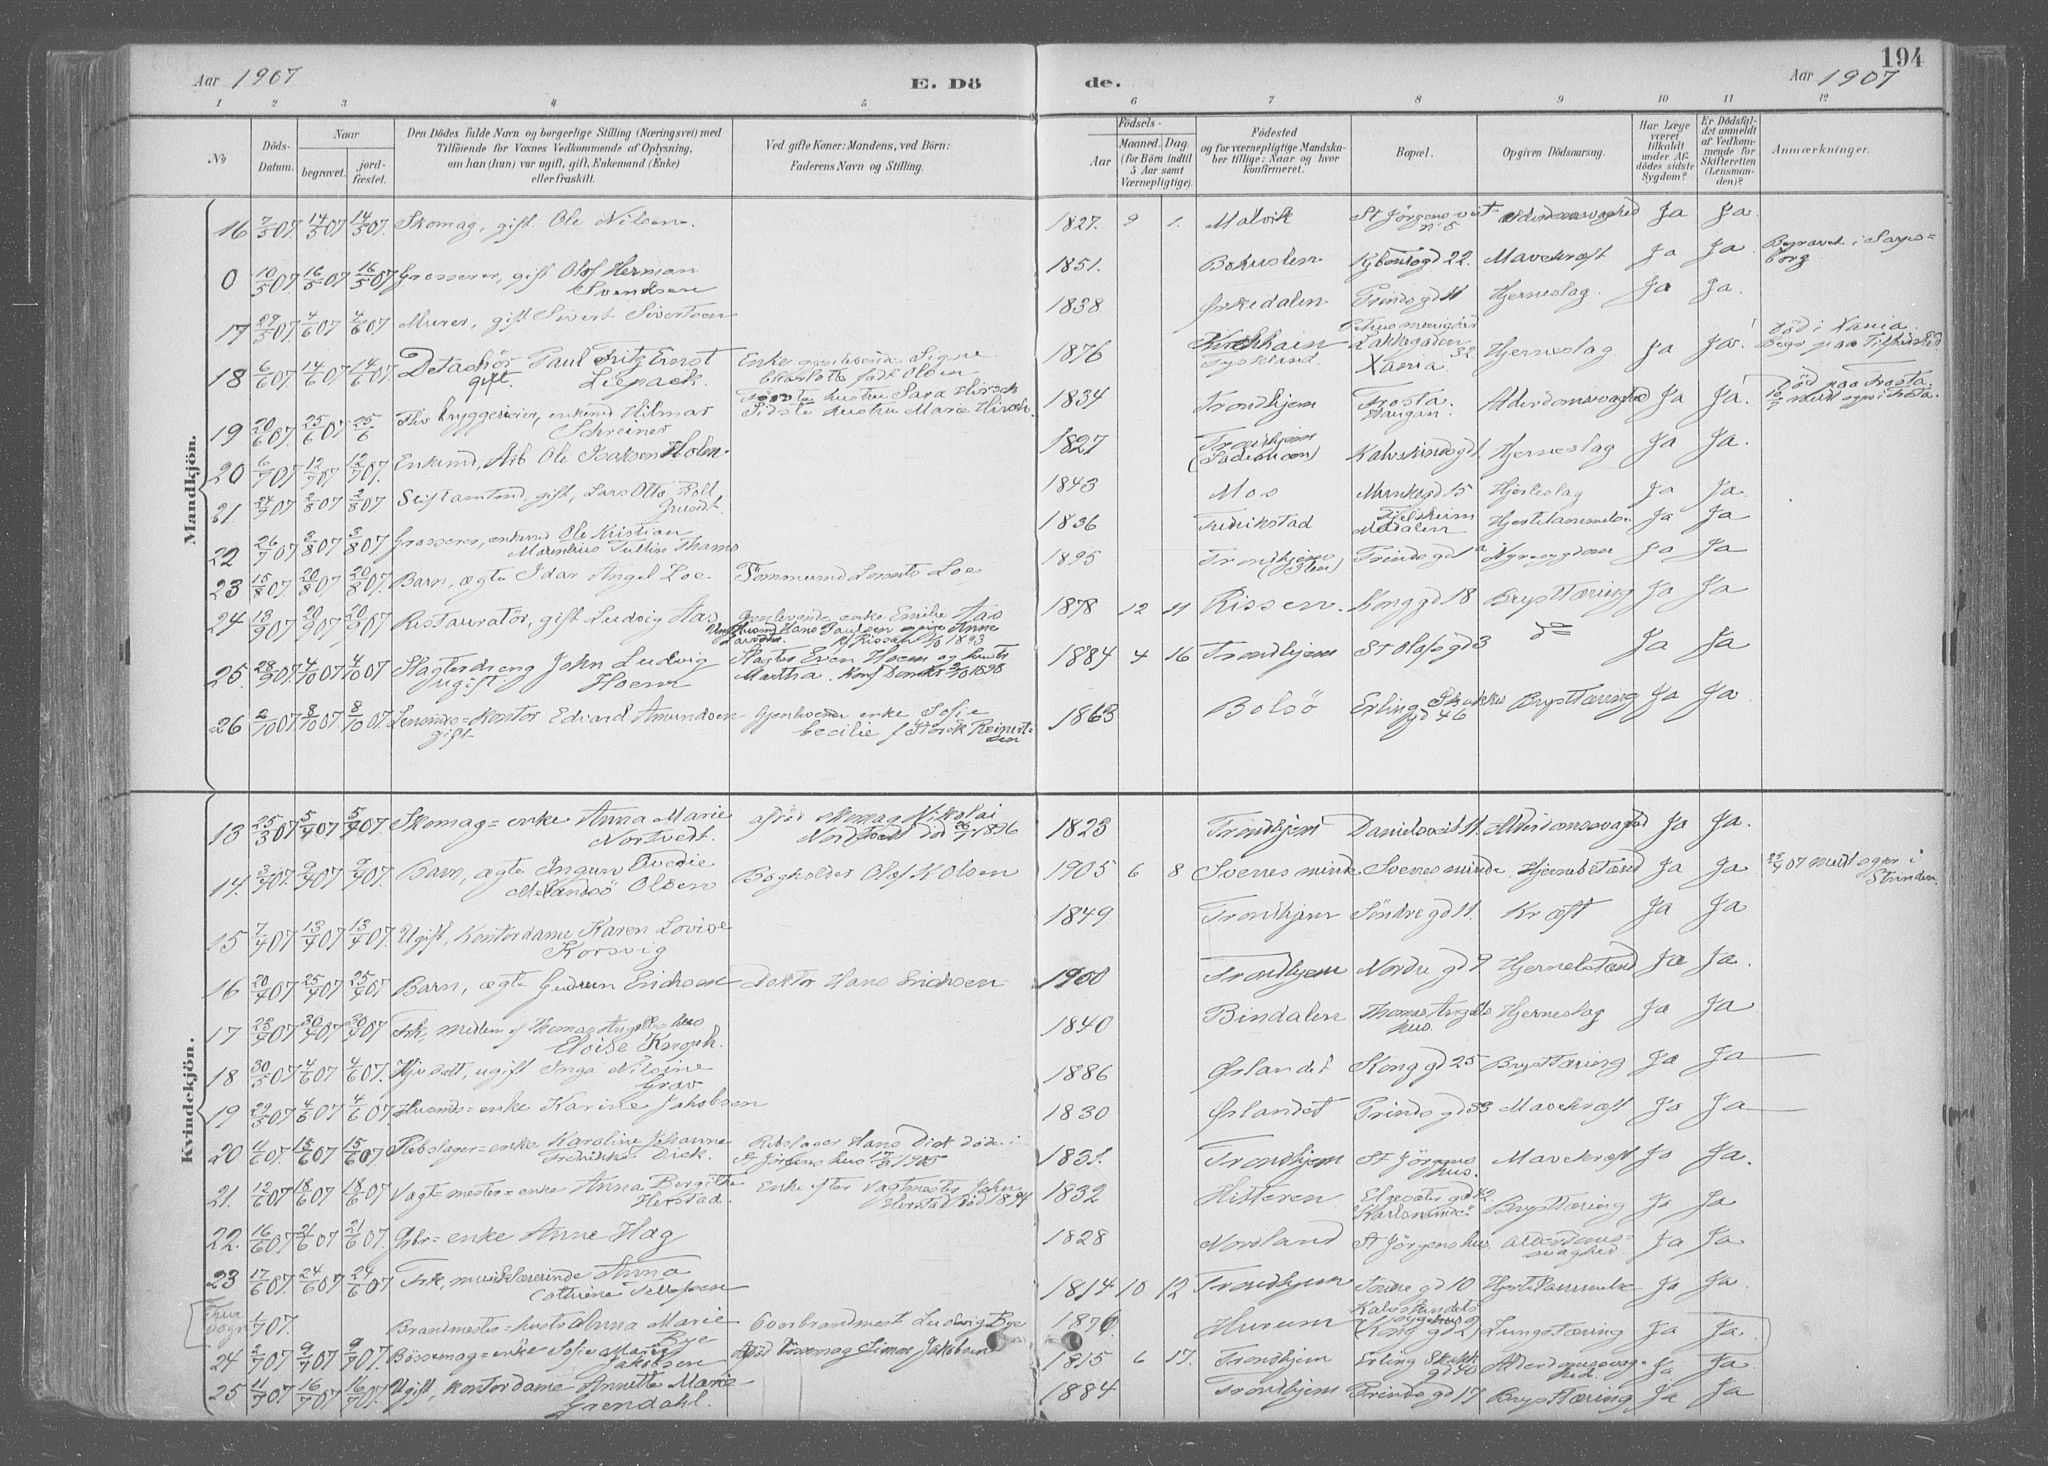 194
Aar 1907 E. Dö de. Aar 1907
1 2 3 4 5 6 7 8 9 10 11 12
No
Döds-Datum.
Naar
begravet.
jord-fæstet.
Den Dödes fulde Navn og borgerlige Stilling (Næringsvei) med
Tilföiende for Voxnes Vedkommende af Oplysning,
om han (hun) var ugift, gift, Enkemand (Enke)
eller fraskilt.
Ved gifte Koner: Mandens, ved Börn:
Faderens Navn og Stilling.
Födsels-
Aar
Maaned. Dag.
(for Börn indtil
5 Aar samt
Værnepligtige).
Födested
og for værnepligtige Mandska-
ber tillige: Naar og hvor
konfirmeret.
Bopæl.
Opgiven Dödsaarsag.
Har Læge
været
tilkaldt
under Af-
dödes sidste
Sygdom?
Er Dödsfal-
det anmeldt
af Vedkom-
mende for
Skifteretten
(Lensman-
den)?
Anmærkninger.
Mandkjön.
16 7/5 07. 14/5 07 14/5 07. Skomag, gift Ole Nilsen. 1827. 9 1. Malvik St Jörgens veit no 5 Alderdomssvaghed Ja Ja.
0 10/5 07. 16/5 07 16/5 07 Grosserer, gift Olof Herman
Svendsen 1851. Bohuslen Kjöbmsgd 22. Mavekræft Ja Ja Begravet i Sarps=
borg
17 29/5 07. 4/6 07 4/6 07. Murer, gift Sivert Sivertsen 1838 Orkedalen Prinds gd 11 Hjerneslag. Ja Ja.
18 6/6 07. 14/6 07 14/6 07. Detachör Paul Fritz Ernst
gift. Liepack. Enke gjenlevende Signe
Charlotte födt Olsen 1876 Kirchhain
Tyskland Petrus menighed
Lakkegaden 32
Xania Hjerneslag. Ja Ja! Död i Xania.
19 20/6 07. 25/6 07 25/6 bryggerieier, enkemd Hilmar
Schreiner Förste hustru Sara Hirsch
Sidste hustru Marie Hirsch. 1834 Trondhjem Frosta
Haugan. Alderdomssvaghed Ja Ja! Död paa Frosta.
20 6/7 07 12/7 07 12/7 07. Enkemd, Arb Ole Isaksen Holm. 1827 Trondhjem Kalvskinds gd 1. Hjerneslag Ja Ja.
21. 24/7 07 2/8 07 2/8 07 gift, Lars Otto Roll
Grundt. 1843 Mos Munkegd 15 Hjerteslag Ja Ja.
22 26/7 07 3/8 07 3/8 07 Grosserer, enkemd Ole Kristian
Marenius Tullin Thams 1836 Fredrikstad Meldalen Ja Ja
23 15/8 07. 20/8 07 20/8 07. Barn, ægte Idar Angel Loe Tömmermd Lorents Loe 1895 Trondhjem Prinds gd 1a Nyresygdom Ja Ja
24 13/9 07 20/9 07 20/9 07 Restauratör, gift Ludvig Aas Gjenlevende enke Emilie Aas 1878 12 11 Rissen. Kong gd 18 Brysttæring Ja Ja
25. 28/9 07. 4/10 07 4/10 07 Slagterdreng John Ludvig
ugift Hoem Slagter Even Hoem og hustr
Martha. Konf Domk 2/10 1898 1884 4 16 Trondhjem St Olafs gd 3 do Ja Ja
26 2/10 07. 8/10 07 8/10 07 Edvard Amundsen
gift Gjenlevende enke Sofie
Cecilie 1863 Bolsö Erling Skakkes
gd 46 Brysttæring Ja Ja
Kvindekjön.
13 25/3 07 5/4 07 5/4 07. Skomag= enke Anna Marie
Nortvedt. afdöd skomag Nikolai
1896 1823 Trondhjem Danielsveit 11. Alderdomssvaghed Ja Ja.
14. 3/4 07. 9/4 07 9/4 07 Barn, ægte Ingrun Tvedie
Melandsö Olsen Bogholder Olof K Olsen 1905 6 8 Svenes minde Svenes minde Hjernebetænd Ja Ja 25/4 07 medd ogpr i
Strinden.
15 7/4 07 13/4 07 13/4 07. Ugift, Kontordame Karen Lovise
Korsvig 1849 Trondhjem Söndre gd 11. Kræft Ja Ja
16 20/4 07 25/4 07 25/4 07 Barn, ægte Gudrun Erichsen Doktor Hans Erichsen 1900 Trondhjem Nordre gd 9 Hjernebetænd Ja Ja.
17 23/4 07 30/4 07 30/4 07 Frk, medlem af Thomas Angells hus
Eloise Knoph. 1840 Bindalen Thomas Angells
hus. Hjerneslag Ja Ja
18 30/5 07 4/6 07 4/6 07. ugift Inga Nilsine
Grav 1886 Ørlandet Kong gd 25 Brysttæring Ja Ja
19 29/5 07 4/6 07 4/6 07. Husmds=enke Karine Jakobsen 1830 Ørlandet Prinds gd 53 Mavekræft Ja Ja
20 4/6 07. 15/6 07 15/6 07. Rebslager=enke Karoline Johanne
Fredrikke Dick. Rebslager Hans Dick döde i
St Jörgens hus 17/3 1905 1831. Trondhjem St Jörgens
hus. Mavekræft Ja Ja.
21. 12/6 07 18/6 07 18/6 07 Vagt=mester=enke Anna Bergithe
Herstad. Enke efter vagtmester John
Herstad död 1894 1832 Hitteren Elgesæter gd 42
"Karlsminde" Brysttæring Ja Ja
22. 16/6 07 21/6 07 21/6 07. Arbr=enke Anne Hag 1828 Nordland St Jörgens hus Alderdoms=
svaghed Ja Ja
23 17/6 07. 24/6 07 24/6 07 Frk, musiklærerinde Anna
Cathrine Tellefsen 1814 10 12 Trondhjem Söndre gd 10 Hjertelammelse Ja Ja
1/7 07. Brandmester=hustr Anna Marie
Bye Overbrandmest Ludvig Bye 1876 Hurum Kalvskindets
sygehus
(Kong gd 2) Lungetæring Ja Ja
24 2/7 07 9/7 07 9/7 07. Bössemag=enke Sofie Marie
Jakobsen Afdöd bössemag Simon Jakobsen 1815 6 17. Trondhjem Erling Skakk
gd 40 Alderdomssvag=
hed. Ja Ja
25 11/7 07 16/7 07 16/7 07. Ugift, kontordame Annette Marie
Grendahl. 1884 Trondhjem Prinds gd 17 Brysttæring Ja Ja